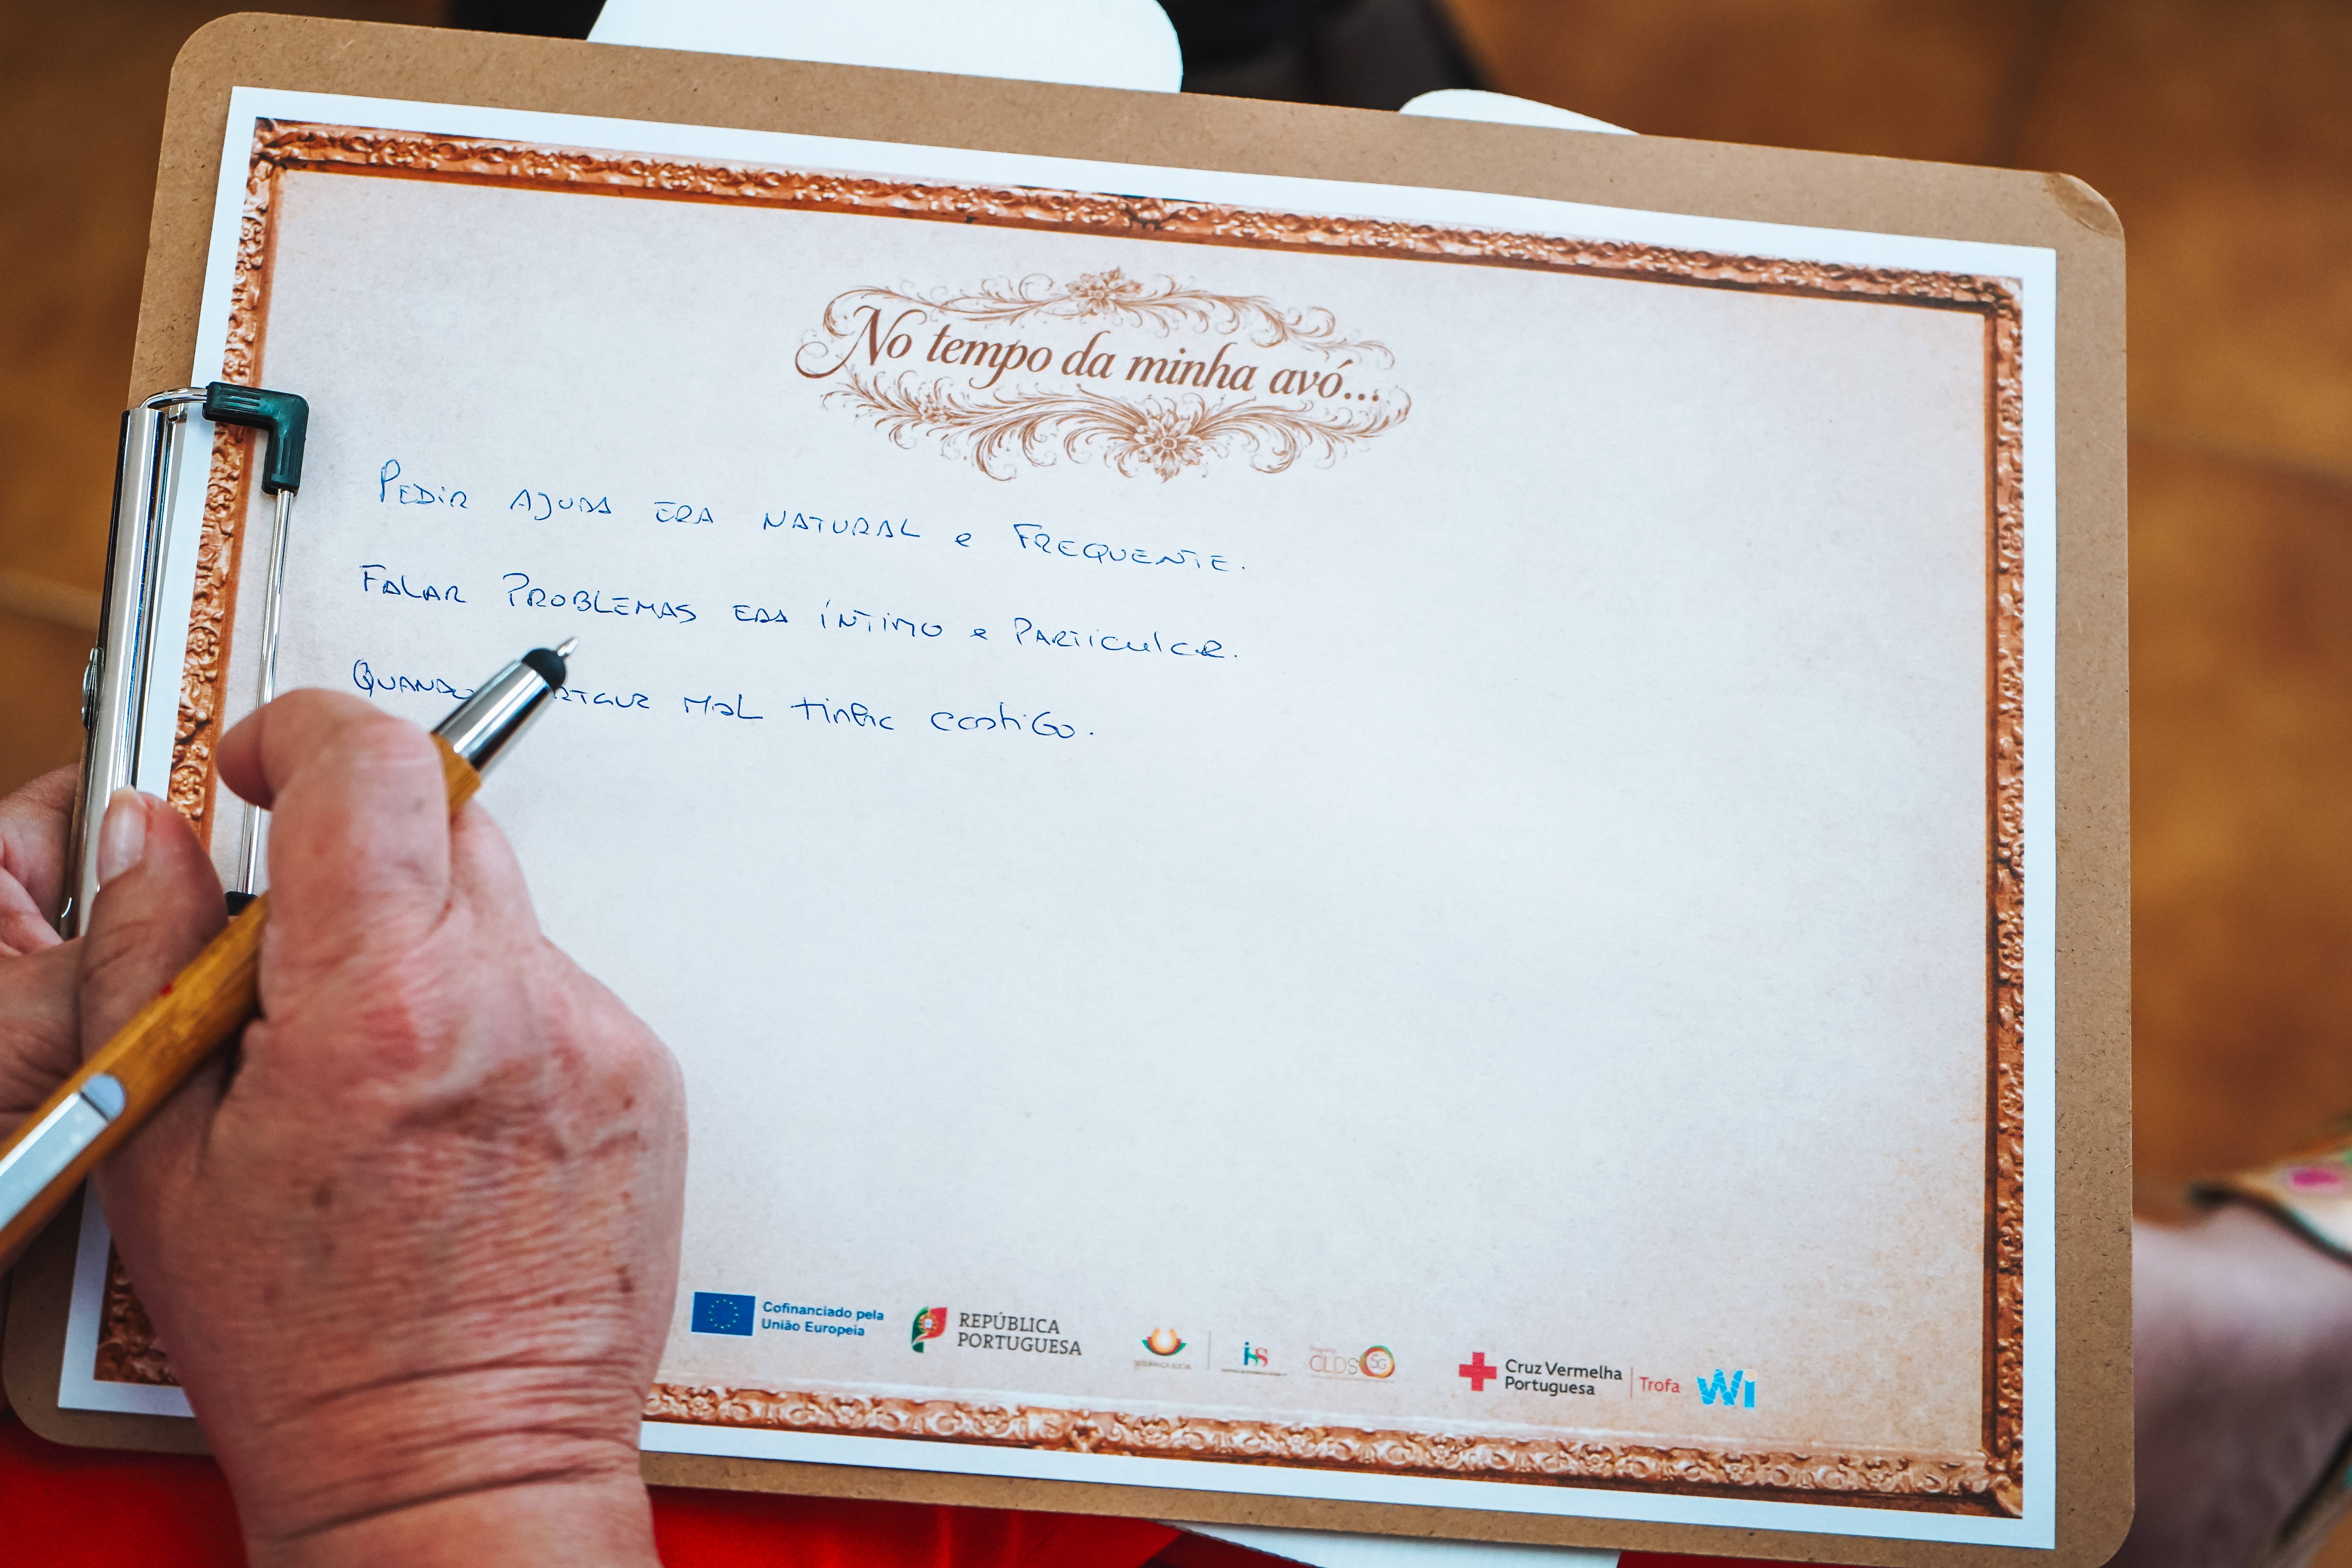 No tempo da minha avó...
PEDIR AJUDA ERA NATURAL e FREQUENTE.
FALAR PROBLEMAS ERA ÍNTIMO e PARTICULAR.
QUANDO MAL tinha castiGo.
Cofinanciado pela
União Europeia
REPÚBLICA
PORTUGUESA
SEGURANÇA SOCIAL
iss
CLDS 5G
Cruz Vermelha
Portuguesa
Trofa
Wi